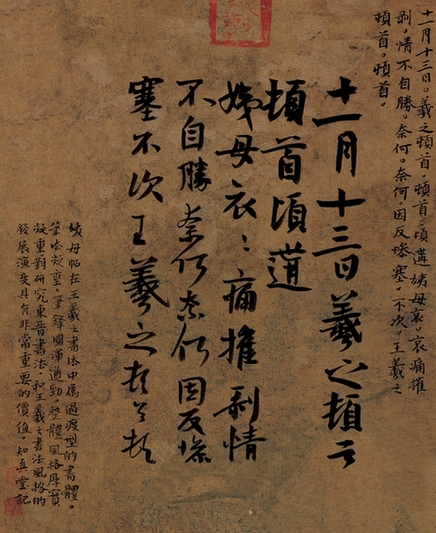 十一月十三日。羲之頓首,頓首。頃遘姨母哀。哀痛摧
剥。情不自勝。奈何。奈何。因反慘塞。不次。王羲之
頓首。頓首。
十一月十三日羲之頓首
頓首頃遘
姨母哀〻痛摧剥情
不自勝奈何奈何因反慘
塞不次王羲之頓首頓
姨母帖在王羲之書法中屬過渡型的書體。
筆法凝重,筆鋒圓渾遒勁,整體風格厚實
凝重對研究東晉書法,和王羲之書法風格的
發展演變具有非常重要的價值。知真堂記